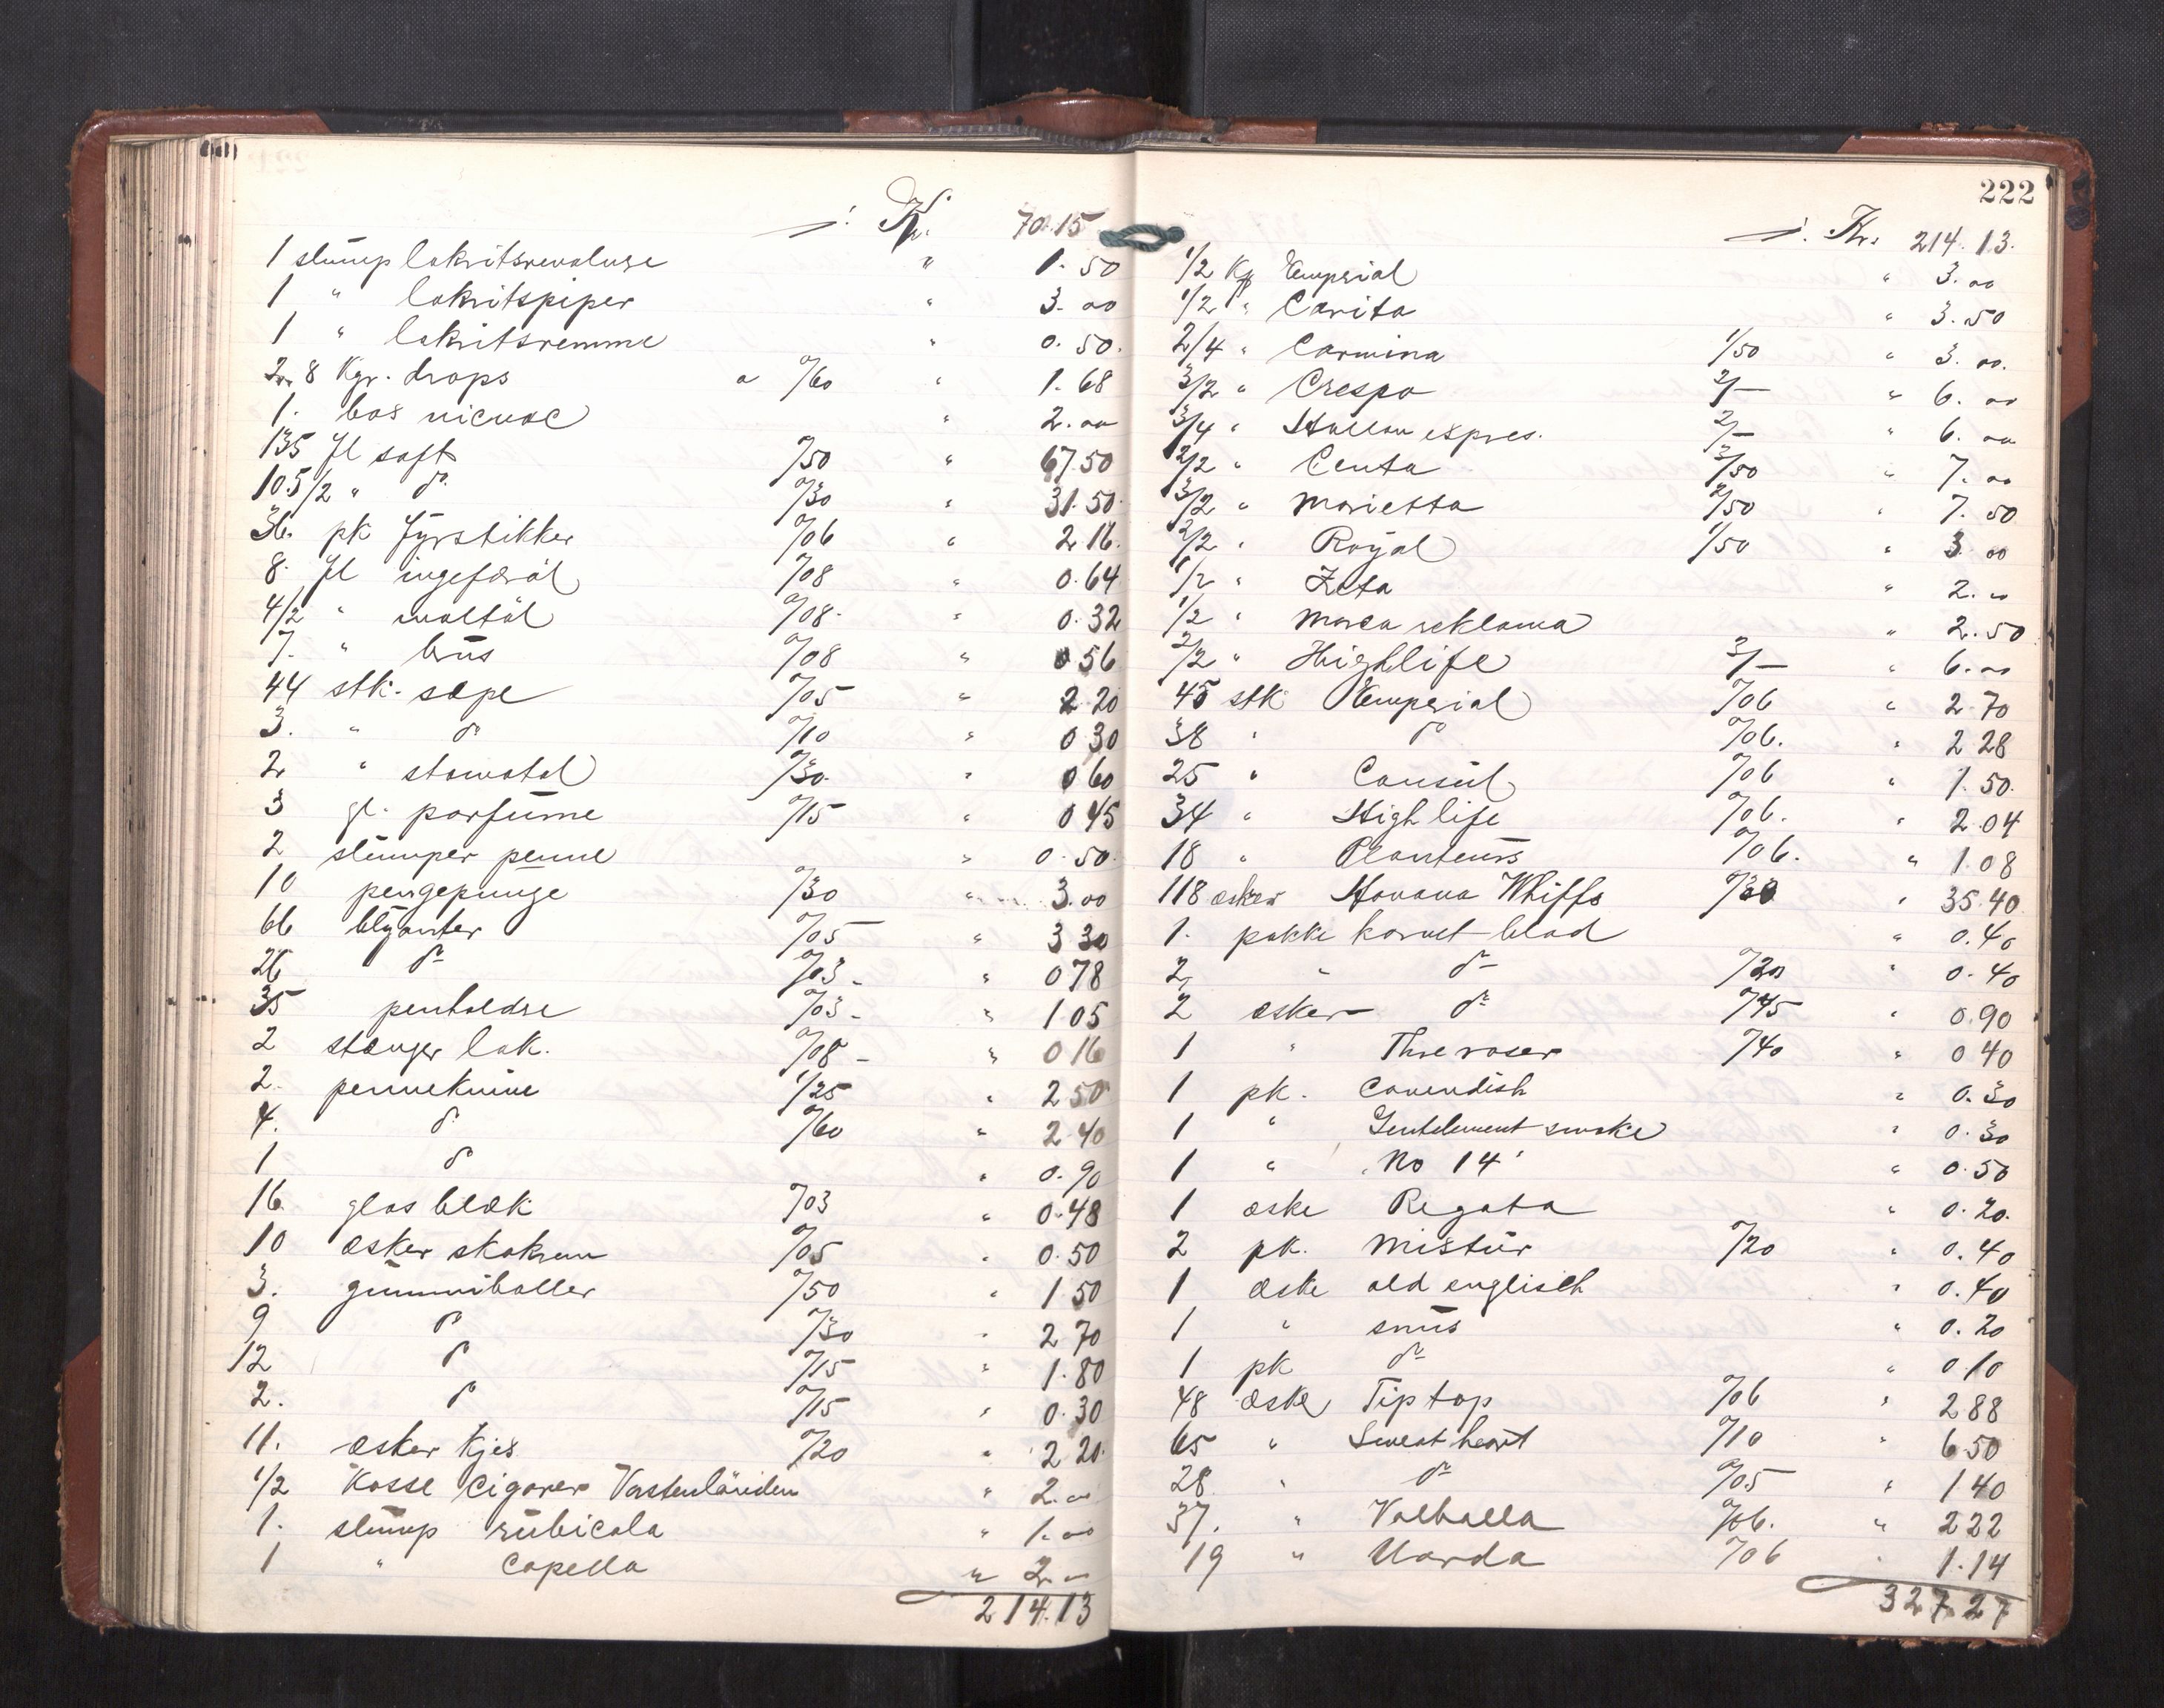 ./. Kr. 70.15
1 slump lakritsrevolvere " 1.50
1 " lakritspiper " 3.00
1 " lakritsremme " 0.50.
2.8 Kgr. drops a 0/60 " 1.68
1. bos " 2.00
135 fl saft 0/50 " 67.50
105/2 " do 0/30 " 31.50.
36. pk fyrstikker 0/06 " 2.16.
8. fl ingeføröl 0/08 " 0.64
4/2 " maltöl 0/08. " 0.32
7. " brus 0/08 " 0 56
44 stk. sæpe 0/05 " 2 20
3. " do 0/10 " 0 30
2 " stomatol 0/30. " 0 60
3 gl. parfume 0/15 " 0 45
2 slumper penne " 0.50.
10 pengepunge 0/30 " 3.00
66 blyanter 0/05 " 3 30
26 do 0/03 - " 0 78
35 penholdre 0/03 - " 1 05
2 stænger lak. 0/08 - " 0 16
2. penneknive 1/25 " 2 50
4. do 0/60 " 2 40
1 do " 0.90
16 glas blæk 0/03 " 0.48
10 æsker skokrem 0/05 " 0.50
3. gummiballer 0/50 " 1 50
9 do 0/30 " 2 70
12 do 0/15 " 1.80
2. do 0/15 " 0.30
11. æsker Kjes 0/20 " 2 20.
1/2 Kasse Cigarer " 2.00
1. slump rubicola " 1.00
1 " Capella " 2.00
214.13
222
./. Kr. 214.13.
1/2 Kg Emperial " 3.00
1/2 " Carita " 3.50
2/4 " Carmina 1/50 " 3.00.
3/2 " Crespo 2/— " 6.00
3/4 " Hallam expres. 2/— " 6.00
2/2 " Centa 3/50 " 7.00
3/2 " Marietta 2/50 " 7.50
2/2 " Royal 1/50 " 3 00
1/2 " Zeta " 2.00
1/2 " Marca reklama " 2.50
2/2 " Highlife 3/— " 6.00
45 stk Emperial 0/06 " 2 70
38 " do 0/06. " 2 28
25 " Consul 0/06 " 1.50.
34 " High life 0/06. " 2.04
18 " Planteurs 0/06. " 1.08
118 æsker Havana Whiffs 0/30 " 35.40
1. pakke karvet blad " 0.40
2 " do 0/20 " 0.40
2 æsker do 0/45 " 0.90
1 " Thre roser 0/40 " 0 40
1 pk. Cavendish " 0.30
1 " Gentelement smoke " 0.30
1 " No 14 " 0.50
1 æske Regata " 0.20.
2 pk. Mistur 0/20 " 0.40
1 æske old englisch " 0.40
1 " snus " 0.20
1 pk do " 0 10
48 æske Tip top 0/06 " 2 88
65 " Sweat heart 0/10 " 6 50
28 " do 0/05 " 1 40
37. " Valhalla 0/06. " 2 22
19 " Uarda 0/06 " 1.14
327.27